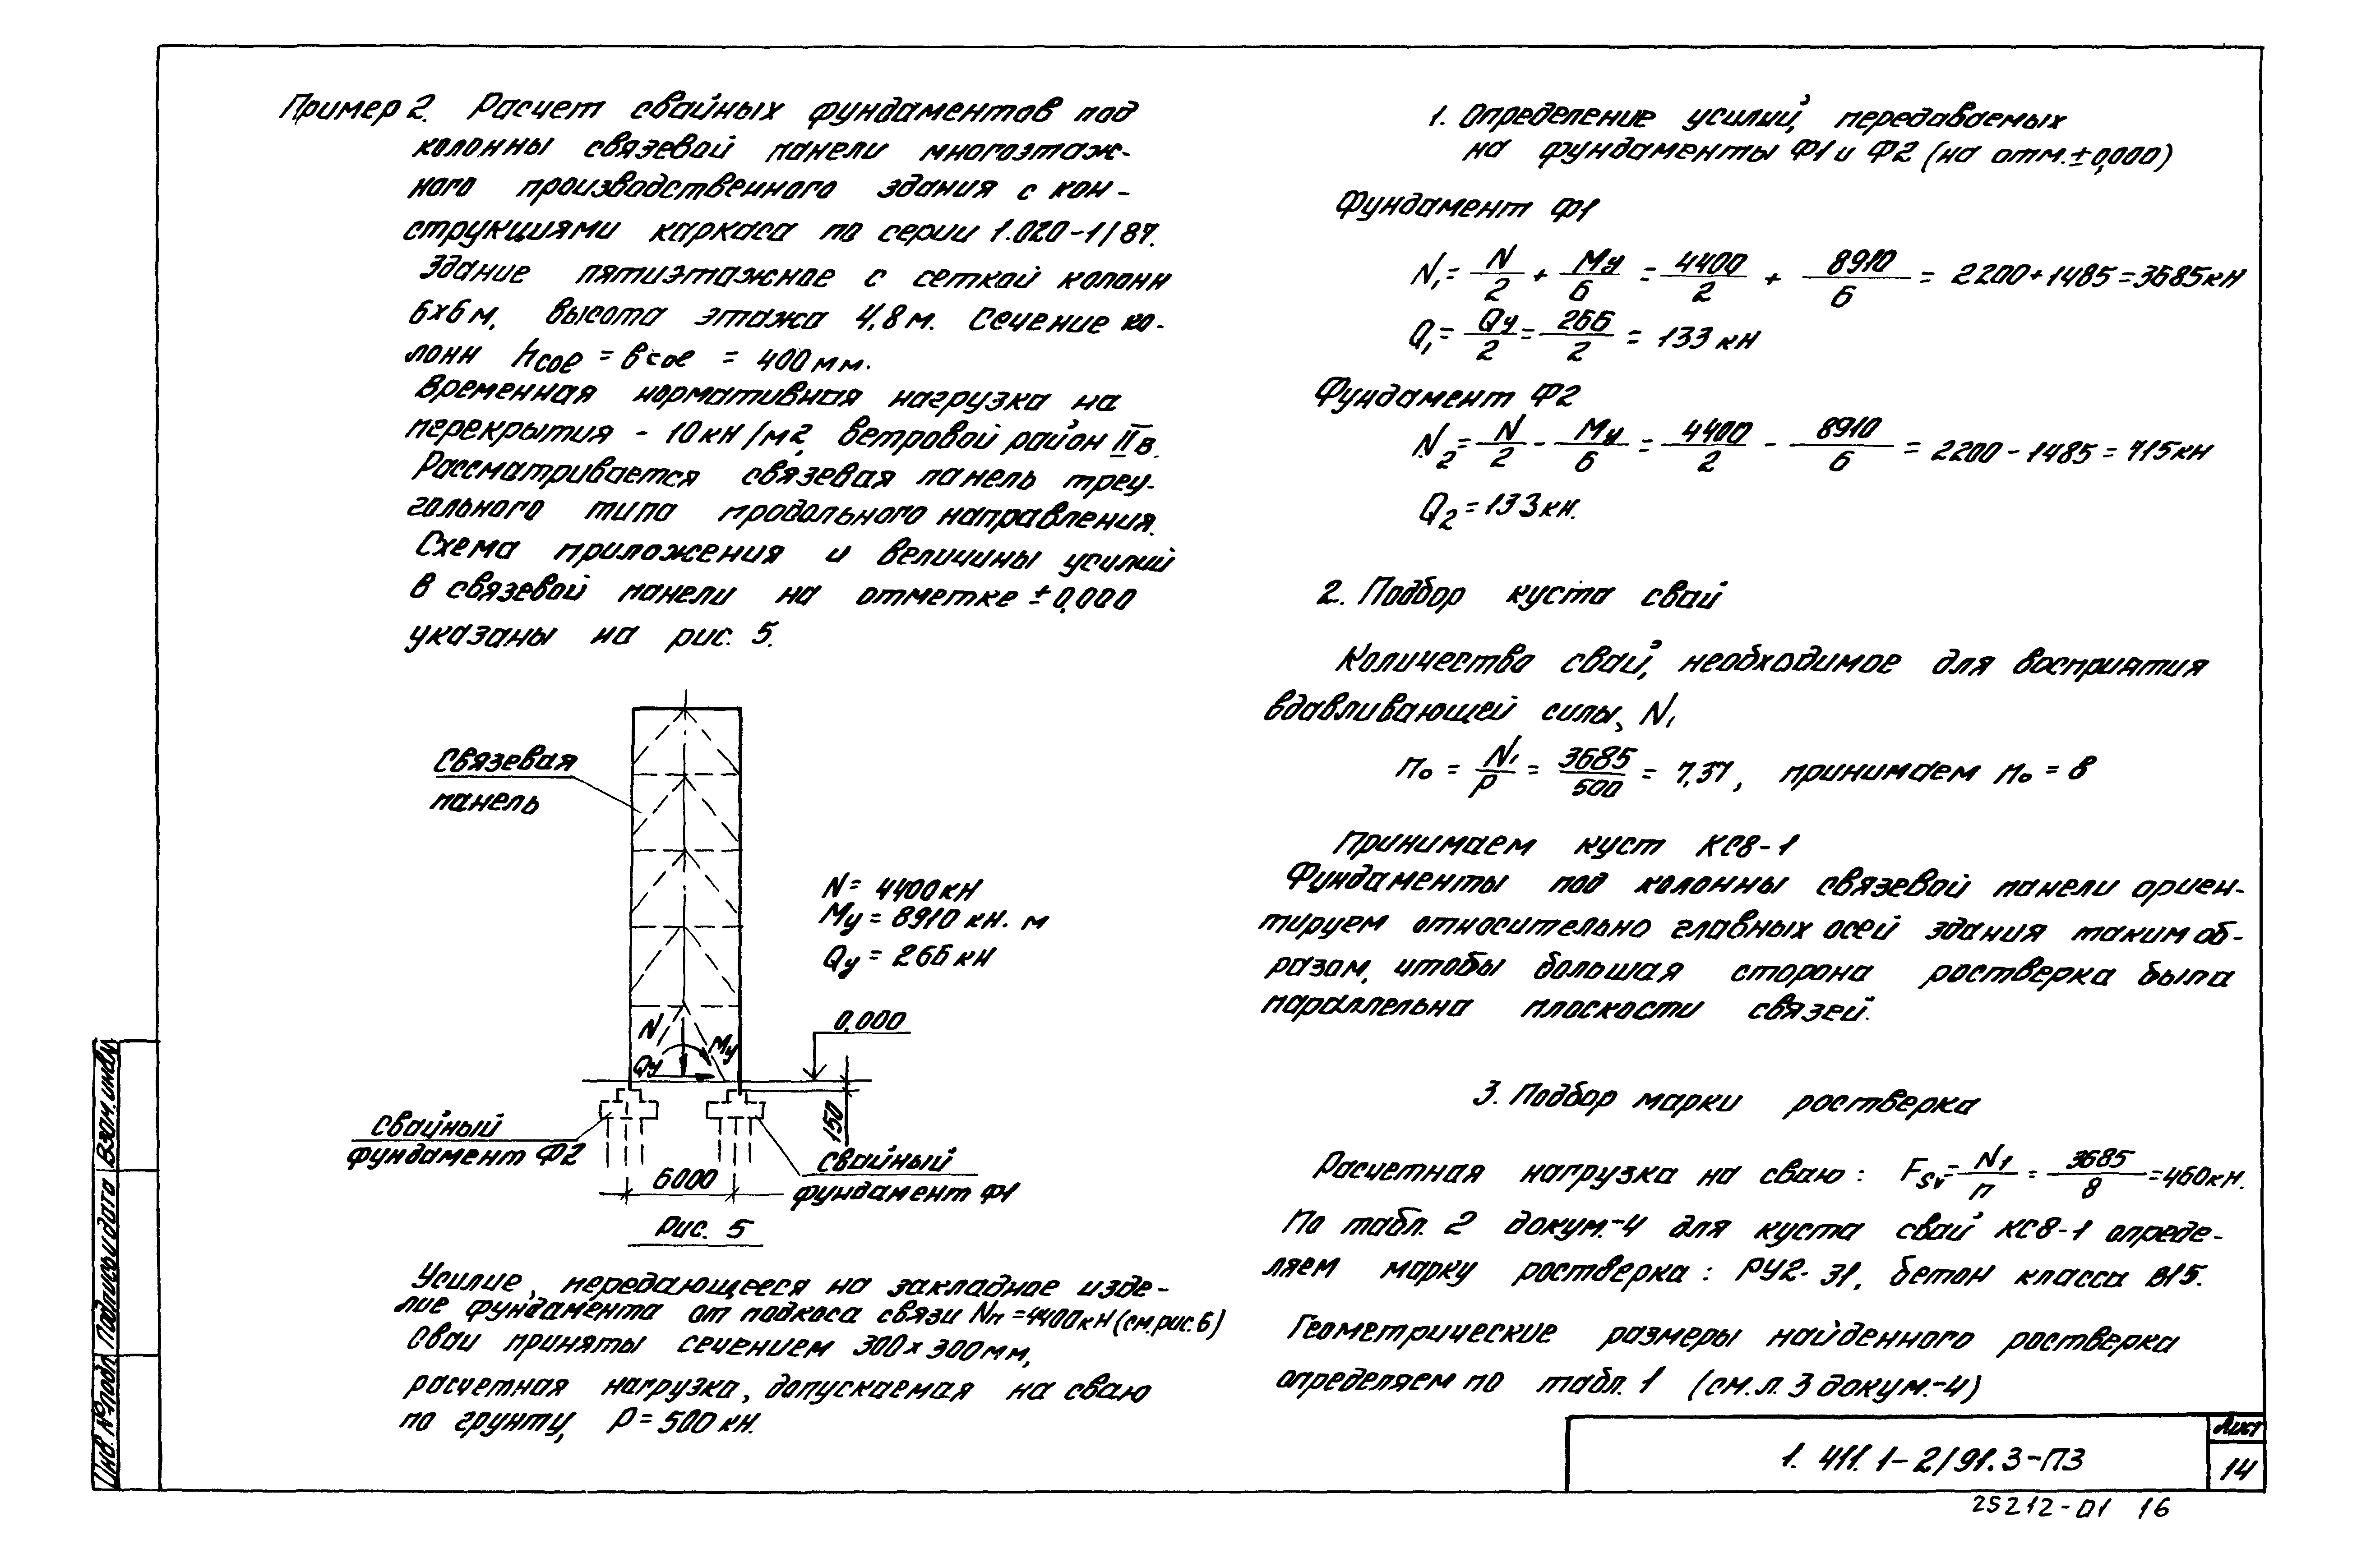 Пример 2. Расчет свайных фундаментов под
колонны связевой панели многоэтаж-
ного производственного здания с кон-
струкциями каркаса по серии 1.020-1/87.
Здание пятиэтажное с сеткой колонн
6×6 м, высота этажа 4,8 м. Сечение ко-
лонн hсое = bсое = 400 мм.
Временная нормативная нагрузка на
перекрытия - 10 кН/м2, ветровой район IIв.
Рассматривается связевая панель треу-
гольного типа продольного направления.
Схема приложения и величины усилий
в связевой панели на отметке ±0,000
указаны на рис. 5.
Связевая
панель
N = 4400 кН
Му = 8910 кН. м
Qу = 266 кН
0,000
N
Му
Qу
150
Свайный
фундамент Ф2
6000
Свайный
фундамент Ф1
Рис. 5
Усилие, передающееся на закладное изде-
лие фундамента от подкоса связи Nп = 4400 кН (см. рис. 6)
Сваи приняты сечением 300×300 мм,
расчетная нагрузка, допускаемая на сваю
по грунту, Р = 500 кН.
1. Определение усилий, передаваемых
на фундаменты Ф1 и Ф2 (на отм. ±0,000)
Фундамент Ф1
N1 = N/2 + Му/6 = 4400/2 + 8910/6 = 2200 + 1485 = 3685 кН
Q1 = Qу/2 = 266/2 = 133 кН
Фундамент Ф2
N2 = N/2 - Му/6 = 4400/2 - 8910/6 = 2200 - 1485 = 715 кН
Q2 = 133 кН.
2. Подбор куста свай
Количество свай, необходимое для восприятия
вдавливающей силы, N1
n0 = N1/Р = 3685/500 = 7,37, принимаем n0 = 8
Принимаем куст КС8-1
Фундаменты под колонны связевой панели ориен-
тируем относительно главных осей здания таким об-
разом, чтобы большая сторона ростверка была
параллельна плоскости связей.
3. Подбор марки ростверка
Расчетная нагрузка на сваю: Fsv = N1/n = 3685/8 = 460 кН.
По табл. 2 докум.-4 для куста свай КС8-1 опреде-
ляем марку ростверка: РУ2-31, бетон класса В15.
Геометрические размеры найденного ростверка
определяем по табл. 1 (см. л. 3 докум.-4)
Инв. № подл. Подпись и дата Взам. инв. №
1.411.1-2/91.3-ПЗ
Лист
14
25212-01 16